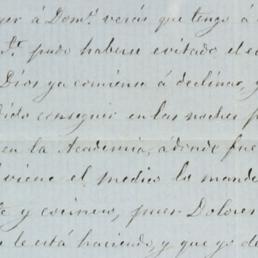 á Dom.º verás que tengo á
pudo haberse evitado el
Dios ya comienza á declinar, y
conseguir en las noches
en la Academia, adonde fue
viene el medico la mande
y cocinera, pues Dolores
le está haciendo, y que yo de